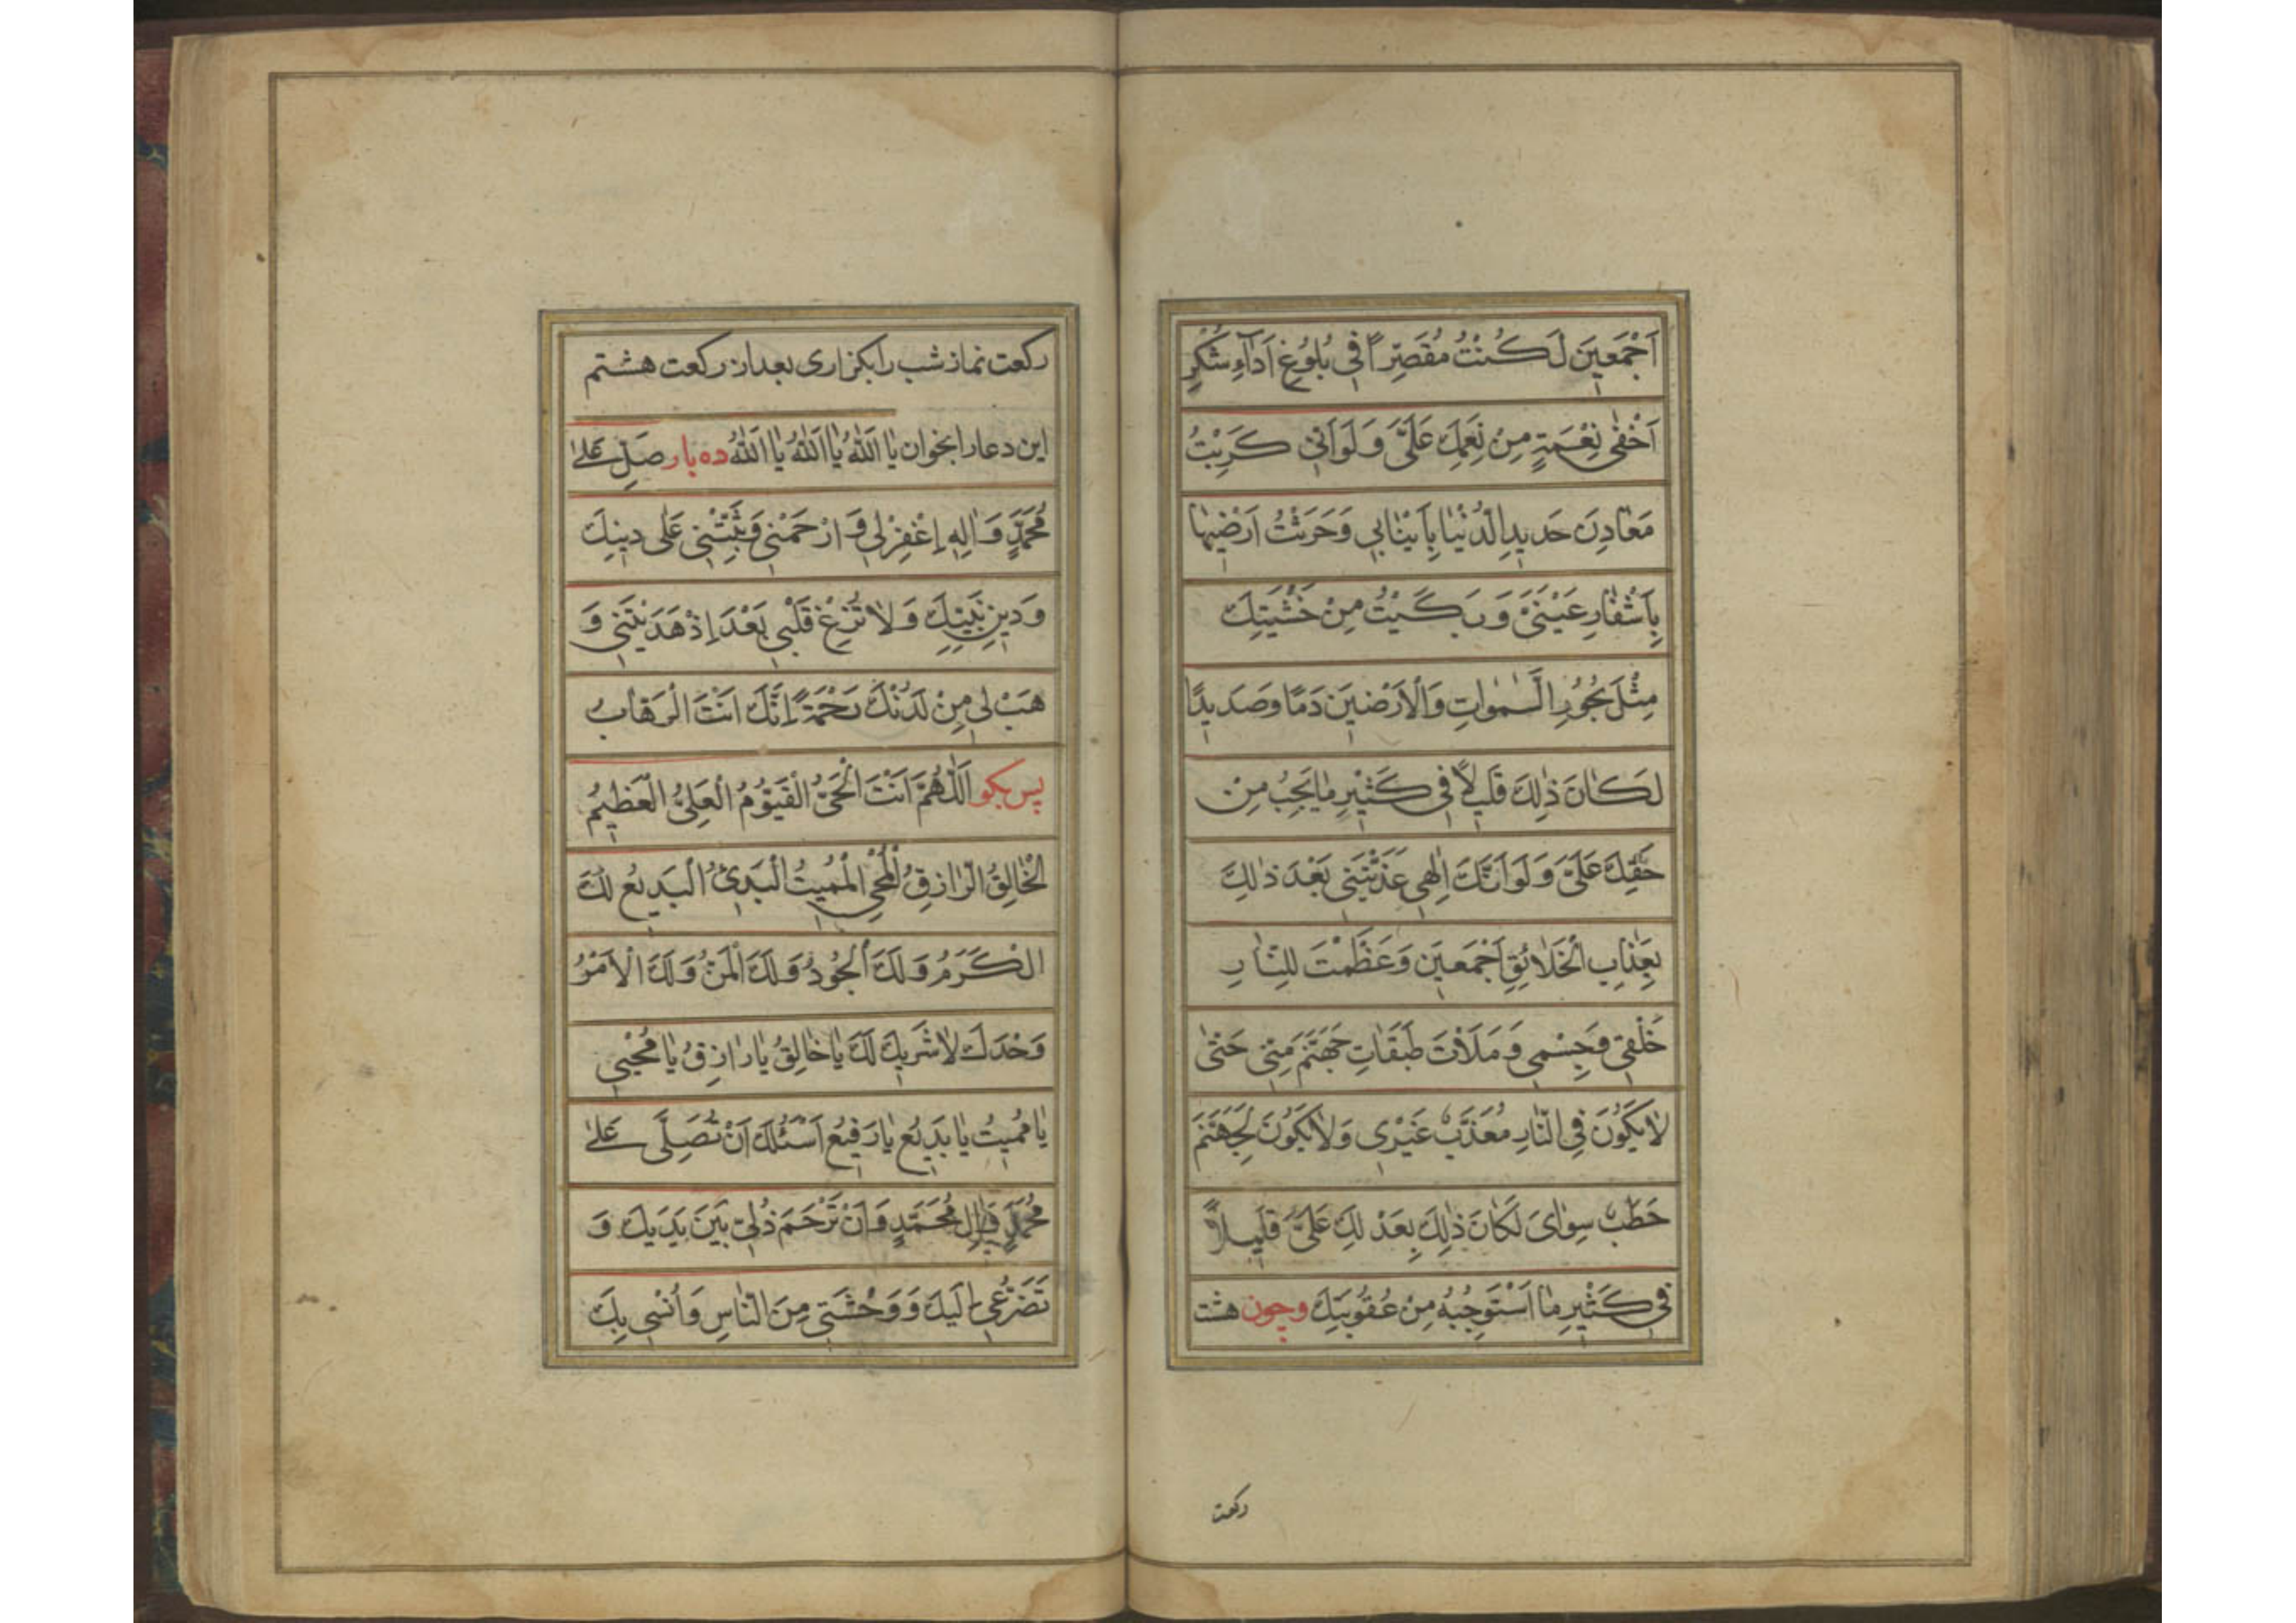 اَجْمَعينَ لَكُنْتُ مُقَصِّرًا فِي بُلُوغِ اَدَآءِ شُكْرِ
اَخْفٰى نِعْمَةٍ مِنْ نِعَمِكَ عَلَيَّ وَلَوْ اَنّي كَرَبْتُ
مَعَادِنَ حَديدِ الدُّنْيٰا بِاَنْيٰابي وَحَرَثْتُ اَرَضيهٰا
بِاَشْفٰارِ عَيْنَيَّ وَبَكَيْتُ مِنْ خَشْيَتِكَ
مِثْلَ بُحُورِ السَّمٰوٰاتِ وَالْاَرَضينَ دَمًا وَصَديدًا
لَكٰانَ ذٰلِكَ قَليلًا في كَثيرِ مٰا يَجِبُ مِنْ
حَقِّكَ عَلَيَّ وَلَوْ اَنَّكَ اِلٰهي عَذَّبْتَني بَعْدَ ذٰلِكَ
بِعَذٰابِ الْخَلٰائِقِ اَجْمَعينَ وَعَظَّمْتَ لِلنّٰارِ
خَلْقي وَجِسْمي وَمَلَأْتَ طَبَقٰاتِ جَهَنَّمَ مِنّي حَتّٰى
لٰا يَكُونَ فِي النّٰارِ مُعَذَّبٌ غَيْري وَلٰا يَكُونَ لِجَهَنَّمَ
حَطَبٌ سِوٰايَ لَكٰانَ ذٰلِكَ بِعَدْلِكَ عَلَيَّ قَليلًا
في كَثيرِ مٰا اَسْتَوْجِبُهُ مِنْ عُقُوبَتِكَ وچون هشت
ركعت
ركعت نماز شب را بكزارى بعد از ركعت هشتم
اين دعا را بخوان يٰا اَللّٰهُ يٰا اَللّٰهُ يٰا اَللّٰهُ ده بار صَلِّ عَلٰى
مُحَمَّدٍ وَاٰلِهِ اِغْفِرْ لي وَارْحَمْني وَثَبِّتْني عَلٰى دينِكَ
وَدينِ نَبِيِّكَ وَلٰا تُزِغْ قَلْبي بَعْدَ اِذْ هَدَيْتَني وَ
هَبْ لي مِنْ لَدُنْكَ رَحْمَةً اِنَّكَ اَنْتَ الْوَهّٰابُ
پس بكو اَللّٰهُمَّ اَنْتَ الْحَيُّ الْقَيُّومُ الْعَلِيُّ الْعَظيمُ
الْخٰالِقُ الرّٰازِقُ الْمُحْيِي الْمُميتُ الْبَدئُ الْبَديعُ لَكَ
الْكَرَمُ وَلَكَ الْجُودُ وَلَكَ الْمَنُّ وَلَكَ الْاَمْرُ
وَحْدَكَ لٰا شَريكَ لَكَ يٰا خٰالِقُ يٰا رٰازِقُ يٰا مُحْيي
يٰا مُميتُ يٰا بَديعُ يٰا رَفيعُ اَسْئَلُكَ اَنْ تُصَلِّيَ عَلٰى
مُحَمَّدٍ وَاٰلِ مُحَمَّدٍ وَاَنْ تَرْحَمَ ذُلّي بَيْنَ يَدَيْكَ وَ
تَضَرُّعي اِلَيْكَ وَوَحْشَتي مِنَ النّٰاسِ وَاُنْسي بِكَ